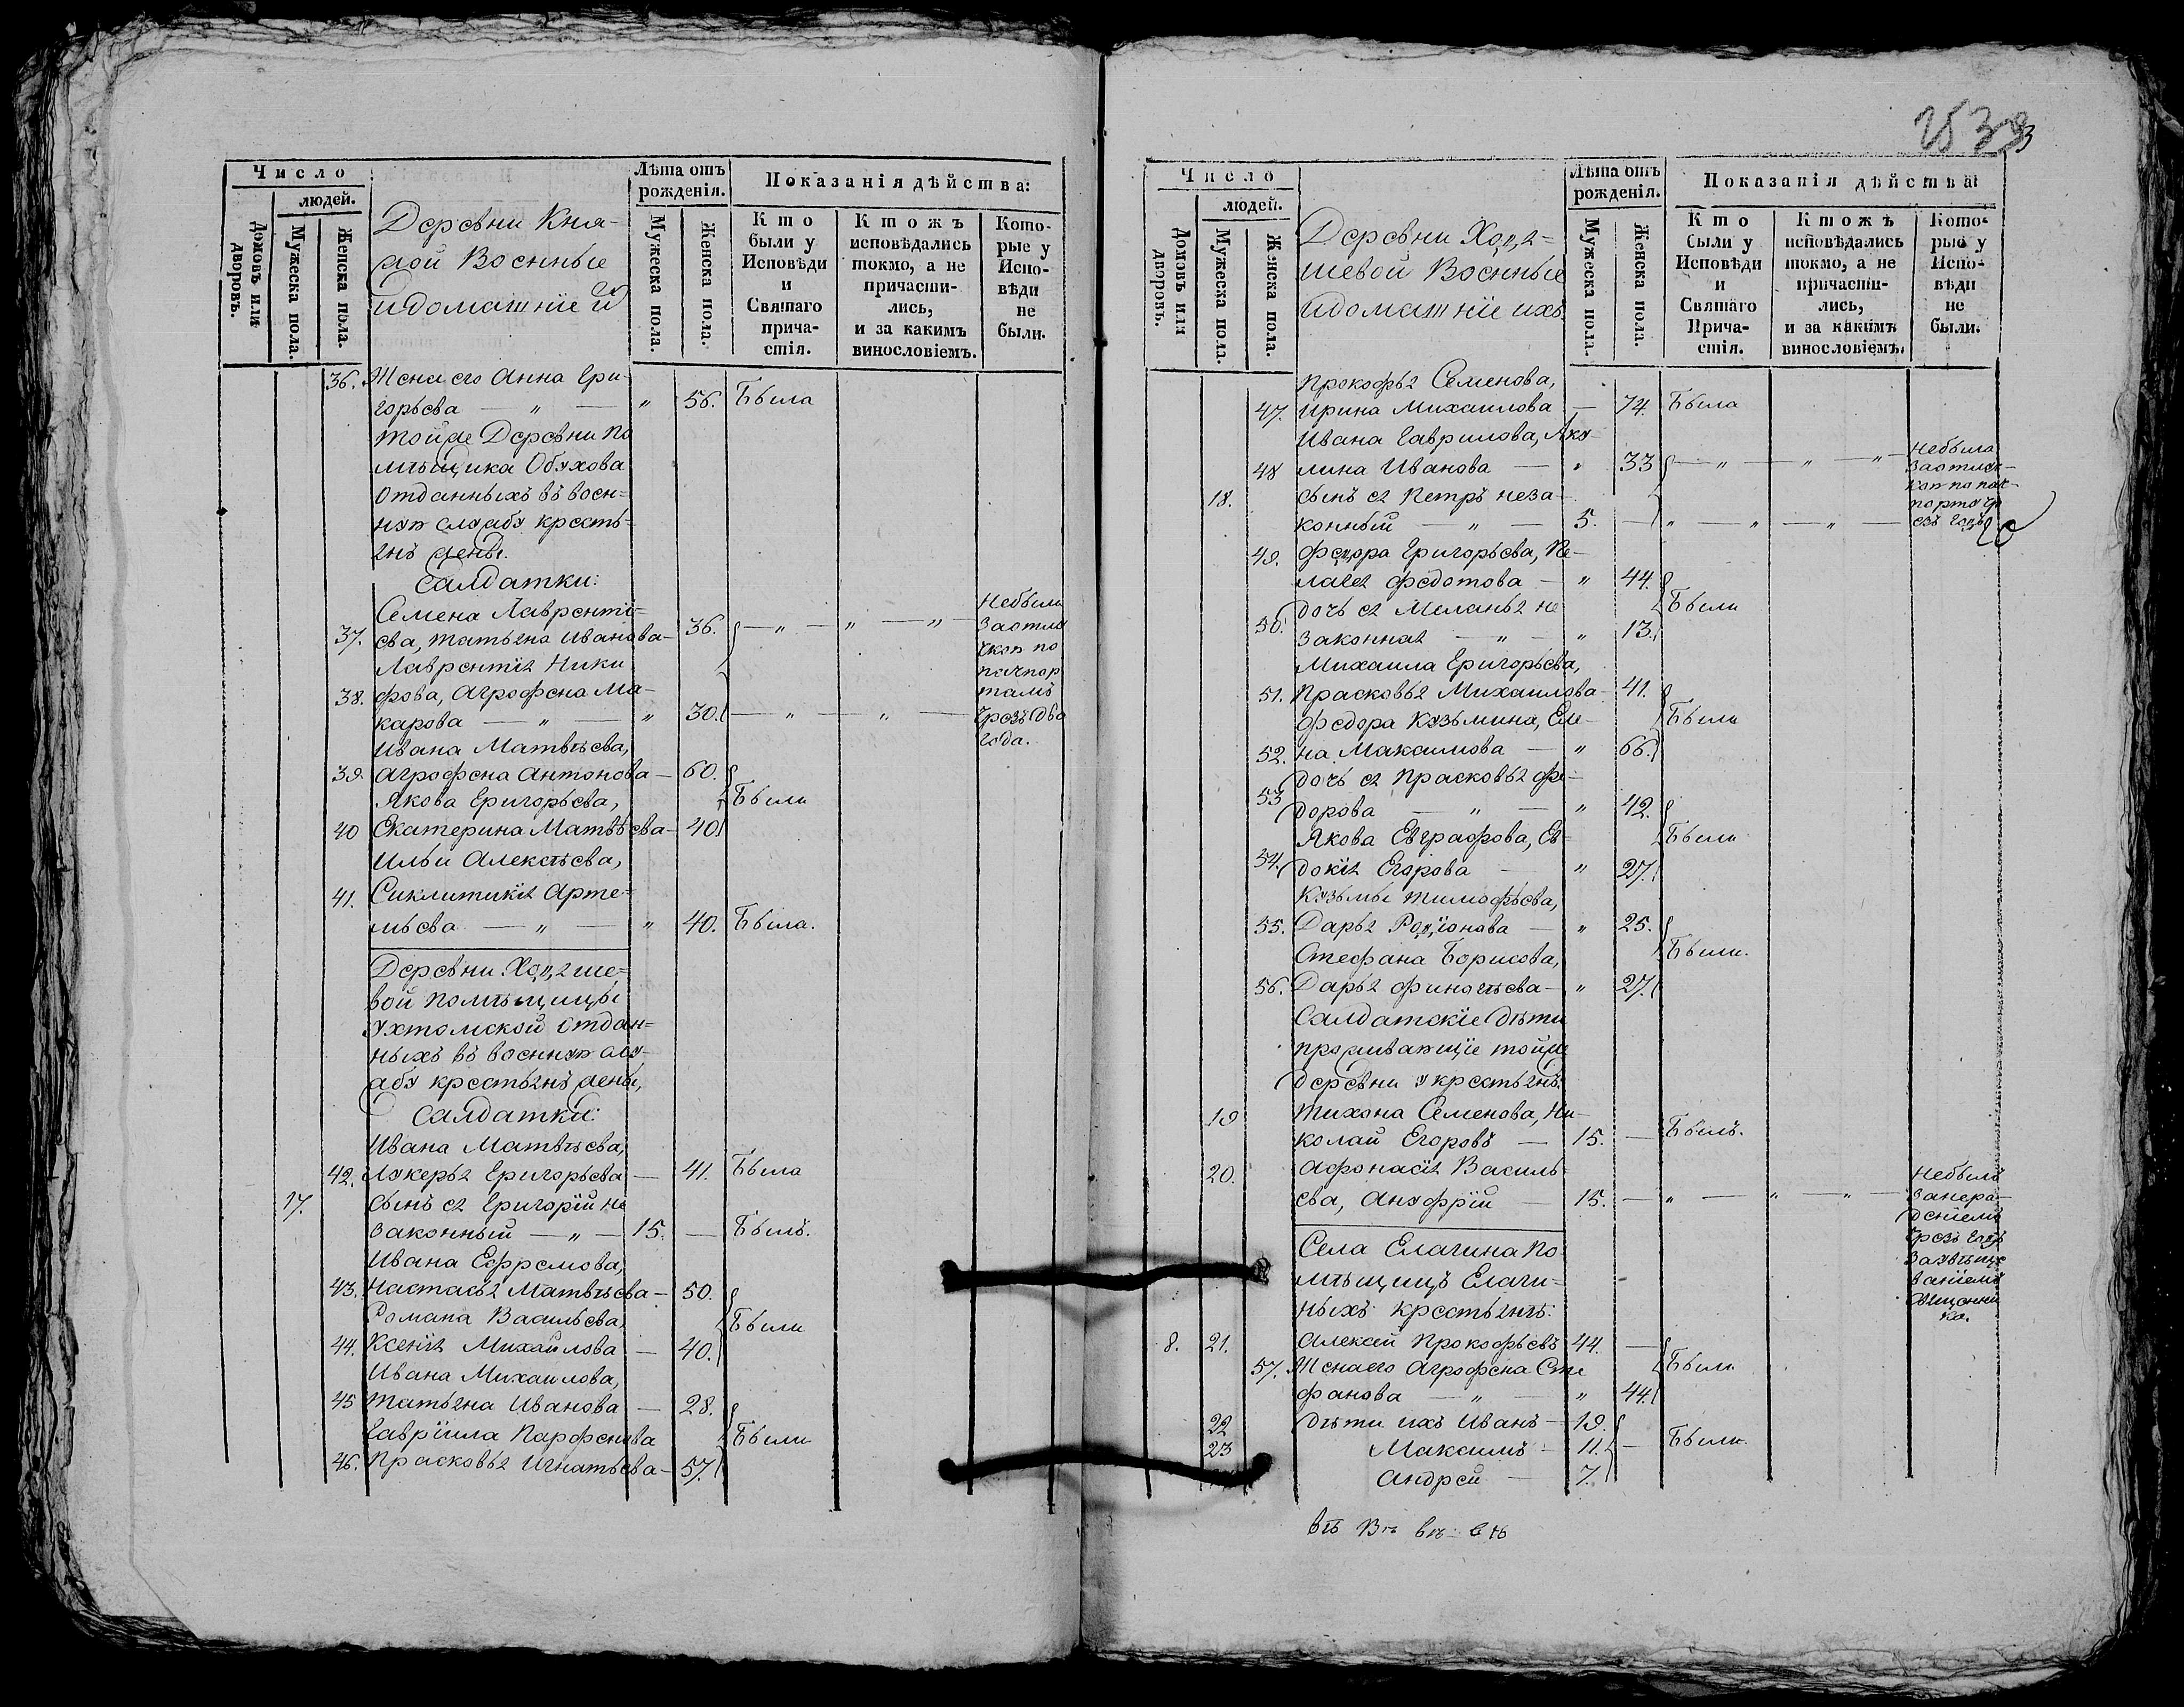 Число
людей.
Домовъ или дворовъ.
Мужеска пола.
Женска пола.
Деревни Кня-
жой Военные
и домашнїе й
Лѣта отъ рожденія.
Мужеска пола.
Женска пола.
Показанія дѣйства:
Кто были у Исповѣди и Святаго причастія.
Ктожъ исповѣдались токмо, а не причастились, и за какимъ винословіемъ.
Которые у Исповѣди не были.
36. Жена его Анна Гри-
горьева — „ — „ 56. Была
тойже Деревни По
мѣщика Обухова
отданныхъ въ воен-
ную службу кресть-
янъ жены.
Салдатки:
Семена Лаврентї-
37. ева, Татьяна Иванова — 36. — „ — „ — „ — Небыли
за отлу
чкою по
пачпор
тамъ
чрезъ два
года.
Лаврентїя Ники
38. фова, Агрофена Ма-
карова — „ — „ 30. — „ — „ —
Ивана Матвѣева,
39. Агрофена Антонова — 60.
Якова Григорьева, Были
40 Екатерина Матвѣева — 40
Ильи Алексѣева,
41. Сиклитикїя Арте-
мьева — „ — „ 40. Была.
Деревни Ходяше-
вой помѣщицы
Ухтомской отдан-
ныхъ въ военную слу-
жбу крестьянъ жены,
Салдатки:
Ивана Матвѣева,
42. Лукерья Григорьева — 41. Была
17. Сынъ ея Григорїй не
законный — „ — 15. — Былъ.
Ивана Ефремова,
43. Настасья Матвѣева — 50.
Романа Васильева, Были
44. Ксенїя Михайлова — 40.
Ивана Михаилова,
45 Татьяна Иванова — 28.
Гаврїила Парфенова Были
46. Прасковья Игнатьева — 57.
253
Число
людей.
Домовъ или дворовъ.
Мужеска пола.
Женска пола.
Деревни Ходя-
шевой Военные
и домашнїе ихъ.
Лѣта отъ рожденія.
Мужеска пола.
Женска пола.
Показанія дѣйства:
Кто были у Исповѣди и Святаго Причастія.
Ктожъ исповѣдались токмо, а не причастились, и за какимъ винословіемъ.
Которые у Исповѣди не были.
Прокофья Семенова,
47. Ирина Михаилова — 74. Была
Ивана Гаврилова, Аку-
48 лина Иванова — „ 33 — „ — „ — „ — Небыла
за отлуч-
кою по пач-
порту чр
езъ годъ
18. Сынъ ея Петръ неза-
конный — „ — 5. — „ — „ — „ —
49. Федора Григорьева, Пе-
лагея Федотова — „ 44.
Дочь ея Меланья не Были
50. законная — „ — „ 13.
Михаила Григорьева,
51. Прасковья Михаилова — 41.
Федора Кузьмина, Еле- Были
52. на Максимова — „ 66.
53 Дочь ея Прасковья Фе-
дорова — „ — „ 42.
Якова Евграфова, Ев- Были
54. докїя Егорова — „ 27.
Кузьмы Тимофѣева,
55. Дарья Родїонова — „ 25.
Стефана Борисова, Были.
56. Дарья — „ 27.
Салдатскїе дѣти
проживающїе тойже
деревни у крестьянъ:
19 Тихона Семенова, Ни-
колай Егоровъ — 15. — Былъ.
20. Афонасїя Василь-
ева, Ануфрїй — 15. — „ — „ — „ — Небылъ
за нера-
денїемъ
чрезъ годъ
за увѣще
ванїемъ
священни
ка.
Села Елагина По
мѣщицъ Елаги-
ныхъ крестьянъ:
8. 21. Алексѣй Прокофьевъ 44. —
57. Жена его Агрофена Сте Были
фанова — „ — „ 44.
22 Дѣти ихъ Иванъ — 19.
23 Максимъ — 11. — Были.
Андрей — 7.